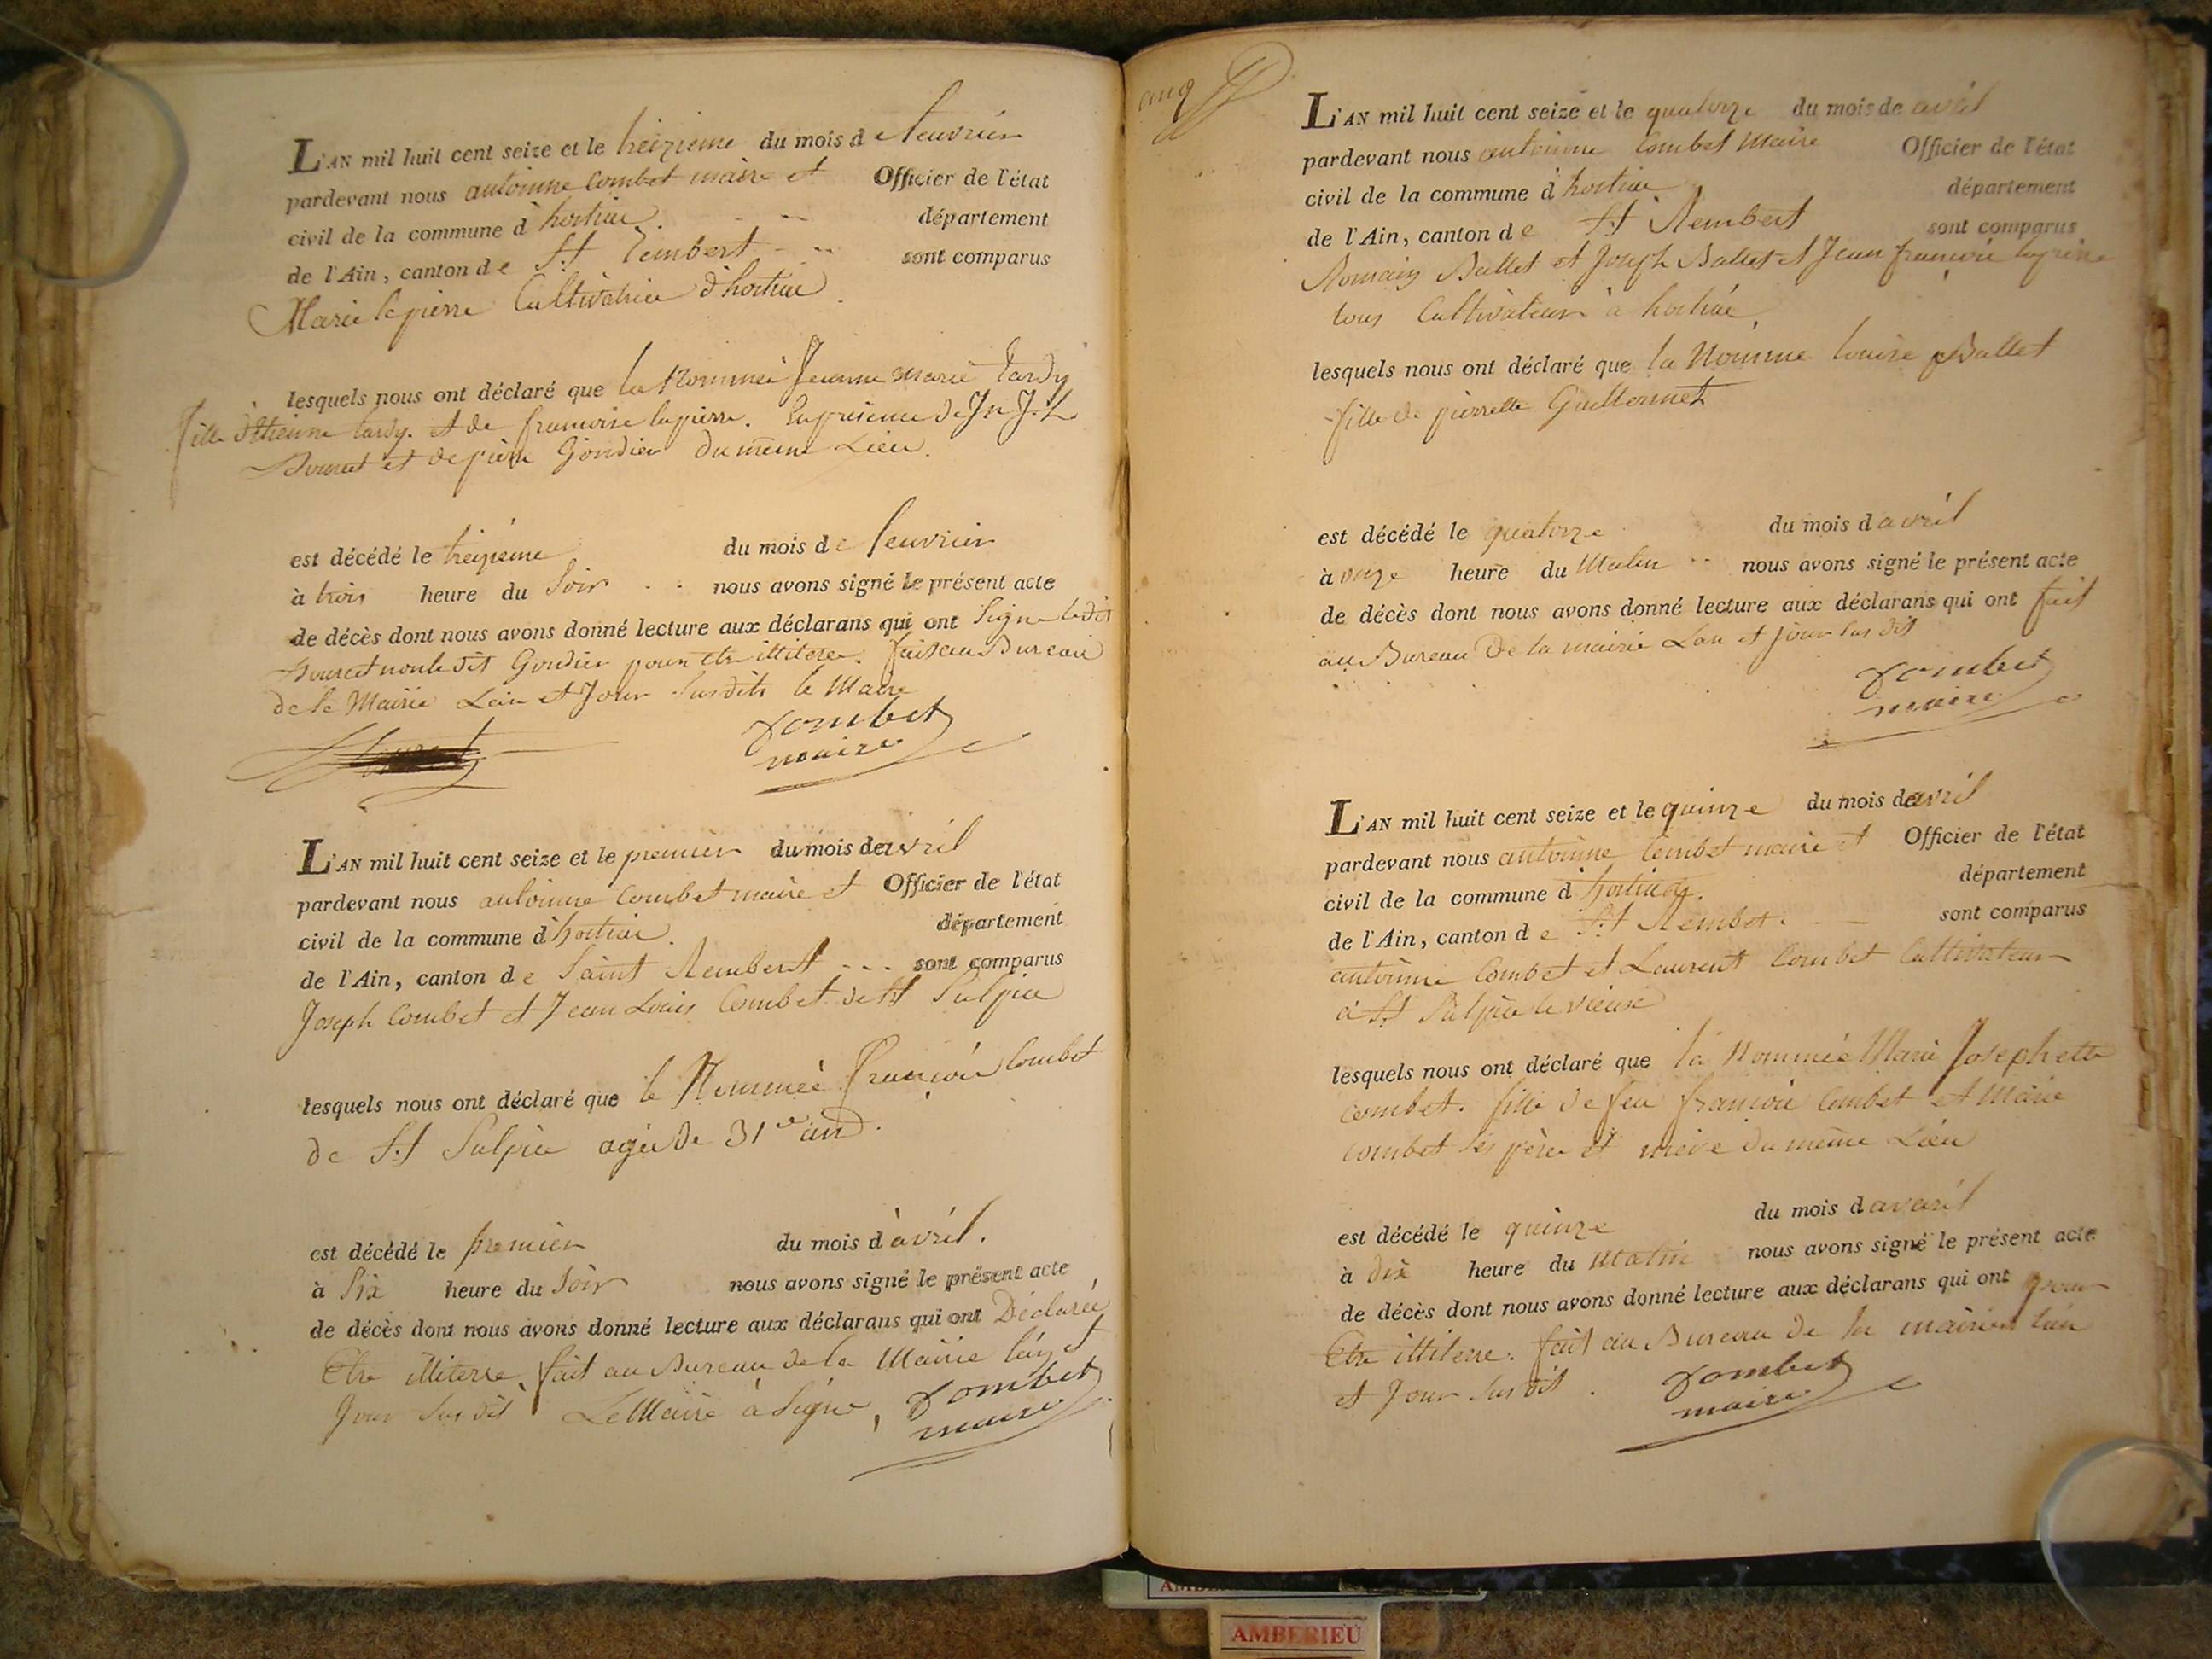 L'AN mil huit cent seize et le treizieme du mois de feuvrier
pardevant nous antoinne Combet maire et Officier de l'état
civil de la commune d'hostiac département
de l'Ain, canton de St Rembert sont comparus
Marie lapierre Cultivatrice d'hostiac
lesquels nous ont déclaré que la Nommée Jeanne Marie tardy
fille d'Etienne tardy et de francoise lapierre. En presence de
et de pierre Gondier du meme Lieu.
est décédé le treizieme du mois de feuvrier
à trois heure du Soir nous avons signé le présent acte
de décès dont nous avons donné lecture aux déclarans qui ont Signé le dit
non le dit Gondier pour etre illitere. fait au Bureau
de la Mairie Lan et Jour Susdits le Maire
Combet
maire
L'AN mil huit cent seize et le premier du mois de avril
pardevant nous antoinne Combet maire et Officier de l'état
civil de la commune d'hostiac département
de l'Ain, canton de Saint Rembert sont comparus
Joseph Combet et Jean Louis Combet de St Sulpice
lesquels nous ont déclaré que le Nommée françois Combet
de St Sulpice agée de 31 an
est décédé le premier du mois d'avril.
à Six heure du Soir nous avons signé le présent acte
de décès dont nous avons donné lecture aux déclarans qui ont Déclarée
Etre illiterre fait au Bureau de la Mairie lan et
Jour Sus dit Le Maire à Signé, Combet
maire
cinq
L'AN mil huit cent seize et le quatorze du mois de avril
pardevant nous antoinne Combet Maire Officier de l'état
civil de la commune d'hostiac département
de l'Ain, canton de St Rembert sont comparus
Romain Ballet et Joseph Ballet et Jean françois lapierre
tous Cultivateur à hostiac
lesquels nous ont déclaré que la Nomme louise Ballet
fille de pierrette Guillermet
est décédé le quatorze du mois d avril
à onze heure du Matin nous avons signé le présent acte
de décès dont nous avons donné lecture aux déclarans qui ont fait
au Bureau De la mairie Lan et Jour Sus dit
Combet
maire
L'AN mil huit cent seize et le quinze du mois de avril
pardevant nous antoinne Combet maire et Officier de l'état
civil de la commune d'hostiac département
de l'Ain, canton de St Rembert sont comparus
antoinne Combet et Laurent Combet Cultivateur
à St Sulpice le vieux
lesquels nous ont déclaré que la Nommée Marie Josephette
combet. fille de feu francois Combet et Marie
combet ses père et mère du meme Lieu
est décédé le quinze du mois d avril
à dix heure du Matin nous avons signé le présent acte
de décès dont nous avons donné lecture aux déclarans qui ont pour
Etre illiterre. fait au Bureau de la mairie lan
et Jour Sus dit. Combet
maire
AMBERIEU